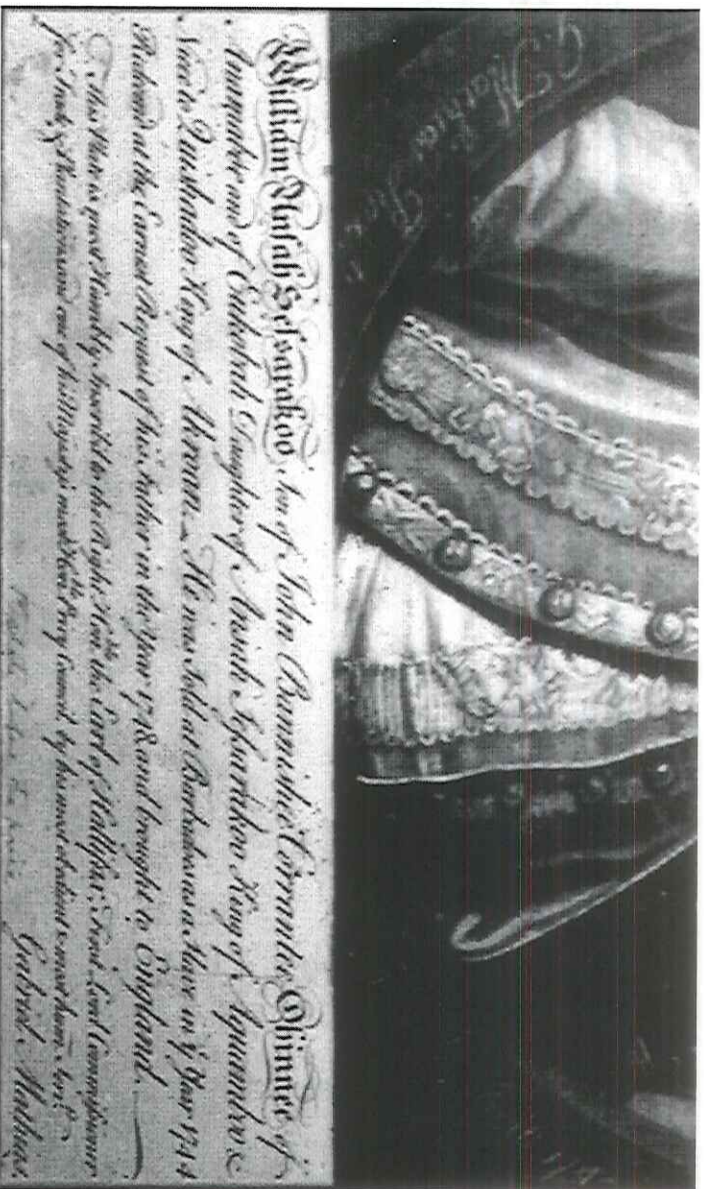 G. Mathias Pinx.t
William Ansah Sessarakoo, Son of John Bannishee Corrantee Ohinnee of
Anamaboe and of Eukobah Daughter of Ansah Sessarakoo King of Aquamboo &
Niece to Quishadoe King of Akroan. He was Sold at Barbadoes as a Slave in ye. Year 1744
Redeem'd at the Earnest Request of his Father in the Year 1748. and brought to England.
This Plate is most Humbly Inscrib'd to the Right Honble. the Earl of Hallifax, First Lord Commissioner
for Trade & Plantations and one of his Majesty's most Honble. Privy Council, by his most obedient & most hum. Servt.
Gabriel Mathias.